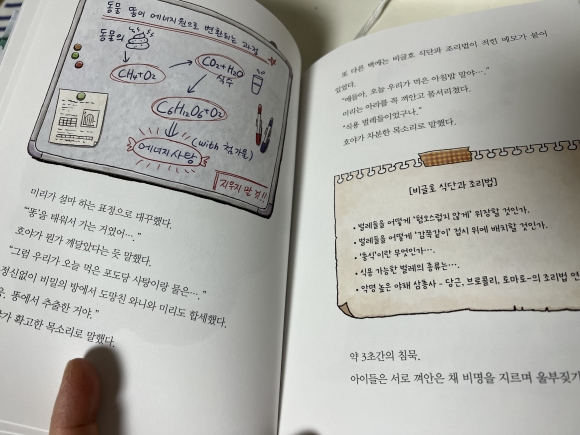 동물 똥이 에너지원으로 변환되는 과정
동물의
CH₄+O₂
CO₂+H₂O
식수
C₆H₁₂O₆+O₂
(with 첨가물)
에너지사탕
지우지 말 것!!
미리가 설마 하는 표정으로 대꾸했다.
"'똥'을 태워서 가는 거였어…."
호야가 뭔가 깨달았다는 듯 말했다.
"그럼 우리가 오늘 먹은 포도당 사탕이랑 물은…."
정신없이 비밀의 방에서 도망친 와니와 미리도 합세했다.
똥에서 추출한 거야."
확고한 목소리로 말했다.
또 다른 벽에는 비글호 식단과 조리법이 적힌 메모가 붙어
있었다.
"얘들아, 오늘 우리가 먹은 아침밥 말야…."
미리는 아라를 꼭 껴안고 몸서리쳤다.
"식용 벌레들이었구나."
호야가 차분한 목소리로 말했다.
[비글호 식단과 조리법]
• 벌레들을 어떻게 '혐오스럽지 않게' 위장할 것인가.
• 벌레들을 어떻게 '감쪽같이' 접시 위에 배치할 것인가.
• '충식'이란 무엇인가….
• 식용 가능한 벌레의 종류는….
• 악명 높은 야채 삼총사 - 당근, 브로콜리, 토마토-의 조리법 연
약 3초간의 침묵.
아이들은 서로 껴안은 채 비명을 지르며 울부짖기